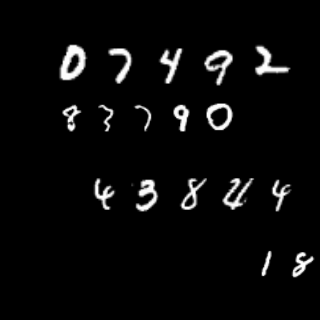 07492
83790
43844
18